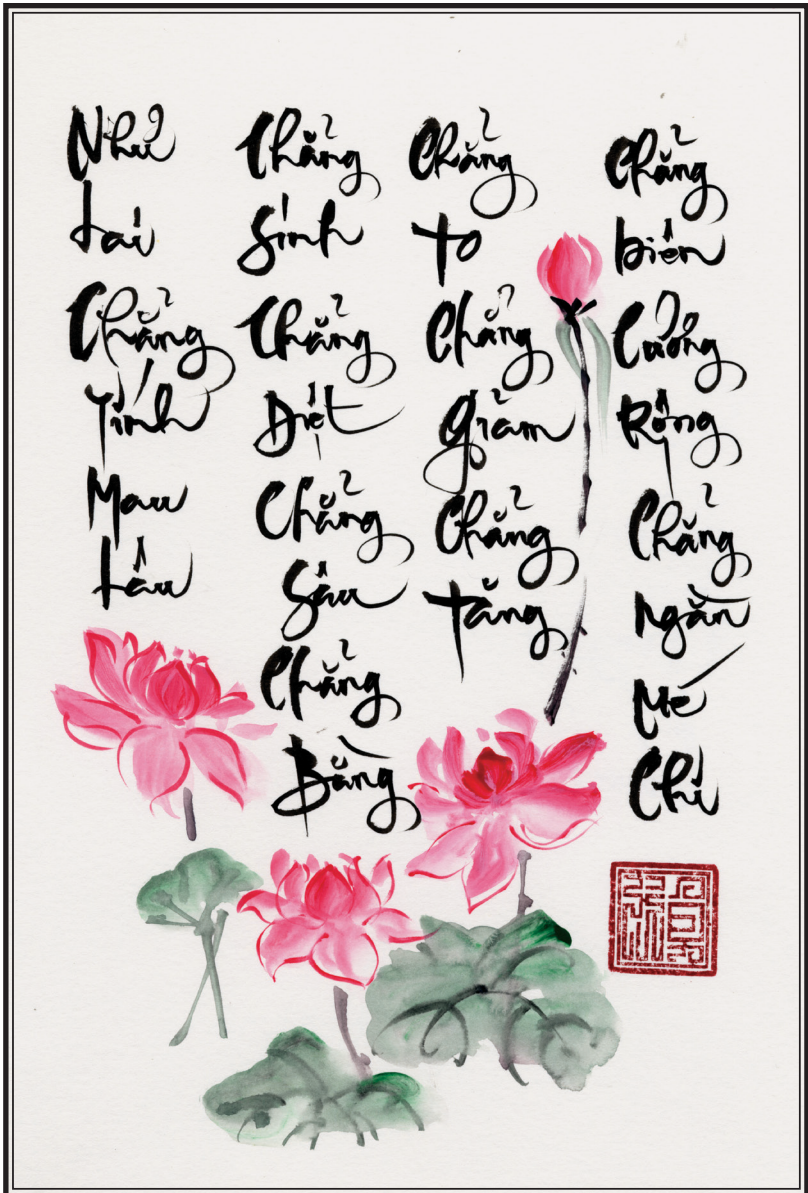 Như Lai Chẳng Tính Mau Lâu
Chẳng Sinh Chẳng Diệt Chẳng Sâu Chẳng Bằng
Chẳng To Chẳng Giảm Chẳng Tăng
Chẳng Biên Cương Rộng Chẳng Ngằn Mé Chi